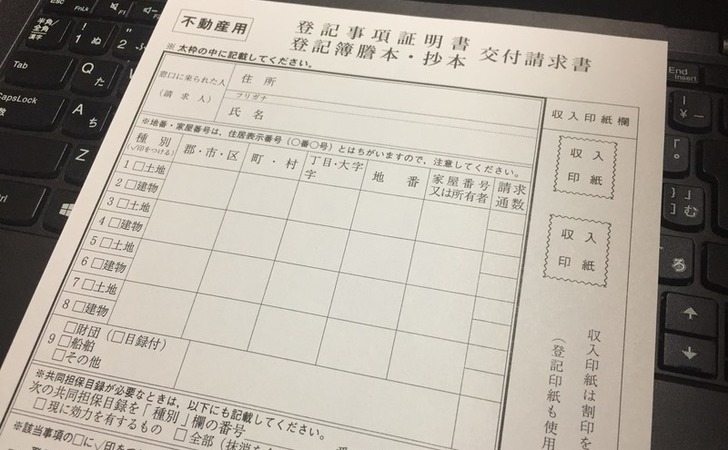 不動産用
登記事項証明書
登記簿謄本・抄本
交付請求書
※太枠の中に記載してください。
窓口に来られた人
(請求人)
住所
フリガナ
氏名
収入印紙欄
収入
印紙
収入
印紙
収入印紙は割印を
(登記印紙も使用
※地番・家屋番号は、住居表示番号(〇番〇号)とはちがいますので、注意してください。
種別
(√印をつける)
郡・市・区
町・村
丁目・大字
字
地番
家屋番号
又は所有者
請求
通数
1□土地
2□建物
3□土地
4□建物
5□土地
6□建物
7□土地
8□建物
□財団(□目録付)
9□船舶
□その他
※共同担保目録が必要なときは、以下にも記載してください。
次の共同担保目録を「種別」欄の番号
□現に効力を有するもの □全部(抹消
※該当事項の□に√印を
Tab
CapsLock
Q
た
A
ち
Fn
Alt
1
ぬ
2
ふ
半角/
全角
漢字
End
Insert
¥
る
む
ろ
↑
↓